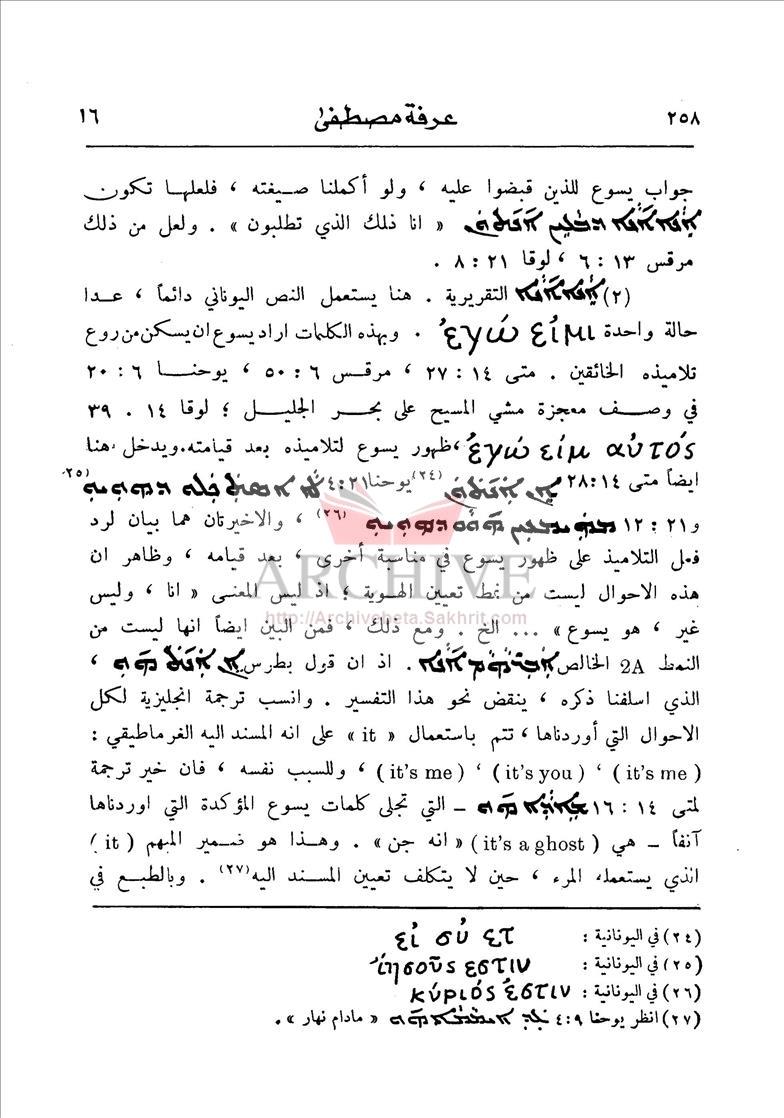 ٢٥٨ عرفة مصطفى ١٦
جواب يسوع للذين قبضوا عليه ، ولو أكملنا صيغته ، فلعلها تكون
« انا ذلك الذي تطلبون » . ولعل من ذلك
مرقس ١٣ : ٦ ، لوقا ٢١ : ٨ .
(٢) التقريرية . هنا يستعمل النص اليوناني دائماً ، عدا
حالة واحدة ἐγώ εἰμι . وبهذه الكلمات اراد يسوع ان يسكن من روع
تلاميذه الخائفين . متى ١٤ : ٢٧ ، مرقس ٦ : ٥٠ ، يوحنا ٦ : ٢٠
في وصف معجزة مشي المسيح على بحر الجليل ؛ لوقا ١٤ . ٣٩
ἐγώ εἰμ αὐτός ، ظهور يسوع لتلاميذه بعد قيامته . ويدخل هنا
ايضاً متى ١٤ : ٢٨ (٢٤) يوحنا ٢١ : ٤ (٢٥)
و ٢١ : ١٢ (٢٦) ، والاخيرتان هما بيان لرد
فعل التلاميذ على ظهور يسوع في مناسبة أخرى ، بعد قيامه ، وظاهر ان
هذه الاحوال ليست من نمط تعيين الهوية ؛ اذ ليس المعنى « انا ، وليس
غير ، هو يسوع » ... الخ . ومع ذلك ، فمن البين ايضاً انها ليست من
النمط 2A الخالص . اذ ان قول بطرس ،
الذي اسلفنا ذكره ، ينقض نحو هذا التفسير . وانسب ترجمة انجليزية لكل
الاحوال التي أوردناها ، تتم باستعمال « it » على انه المسند اليه الغرماطيقي :
( it's me ) ، ( it's you ) ، ( it's me ) ، وللسبب نفسه ، فان خير ترجمة
لمتى ١٤ : ١٦ – التي تجلى كلمات يسوع المؤكدة التي اوردناها
آنفاً – هي ( it's a ghost ) « انه جن » . وهذا هو ضمير المبهم ( it )
الذي يستعمله المرء ، حين لا يتكلف تعيين المسند اليه (٢٧) . وبالطبع في
(٢٤) في اليونانية : εἰ σὺ ετ
(٢٥) في اليونانية : Ἰησοῦς εστιν
(٢٦) في اليونانية : κύριός ἐστιν
(٢٧) انظر يوحنا ٩ : ٤ « مادام نهار » .
ARCHIVE
http://Archivebeta.Sakhrit.com